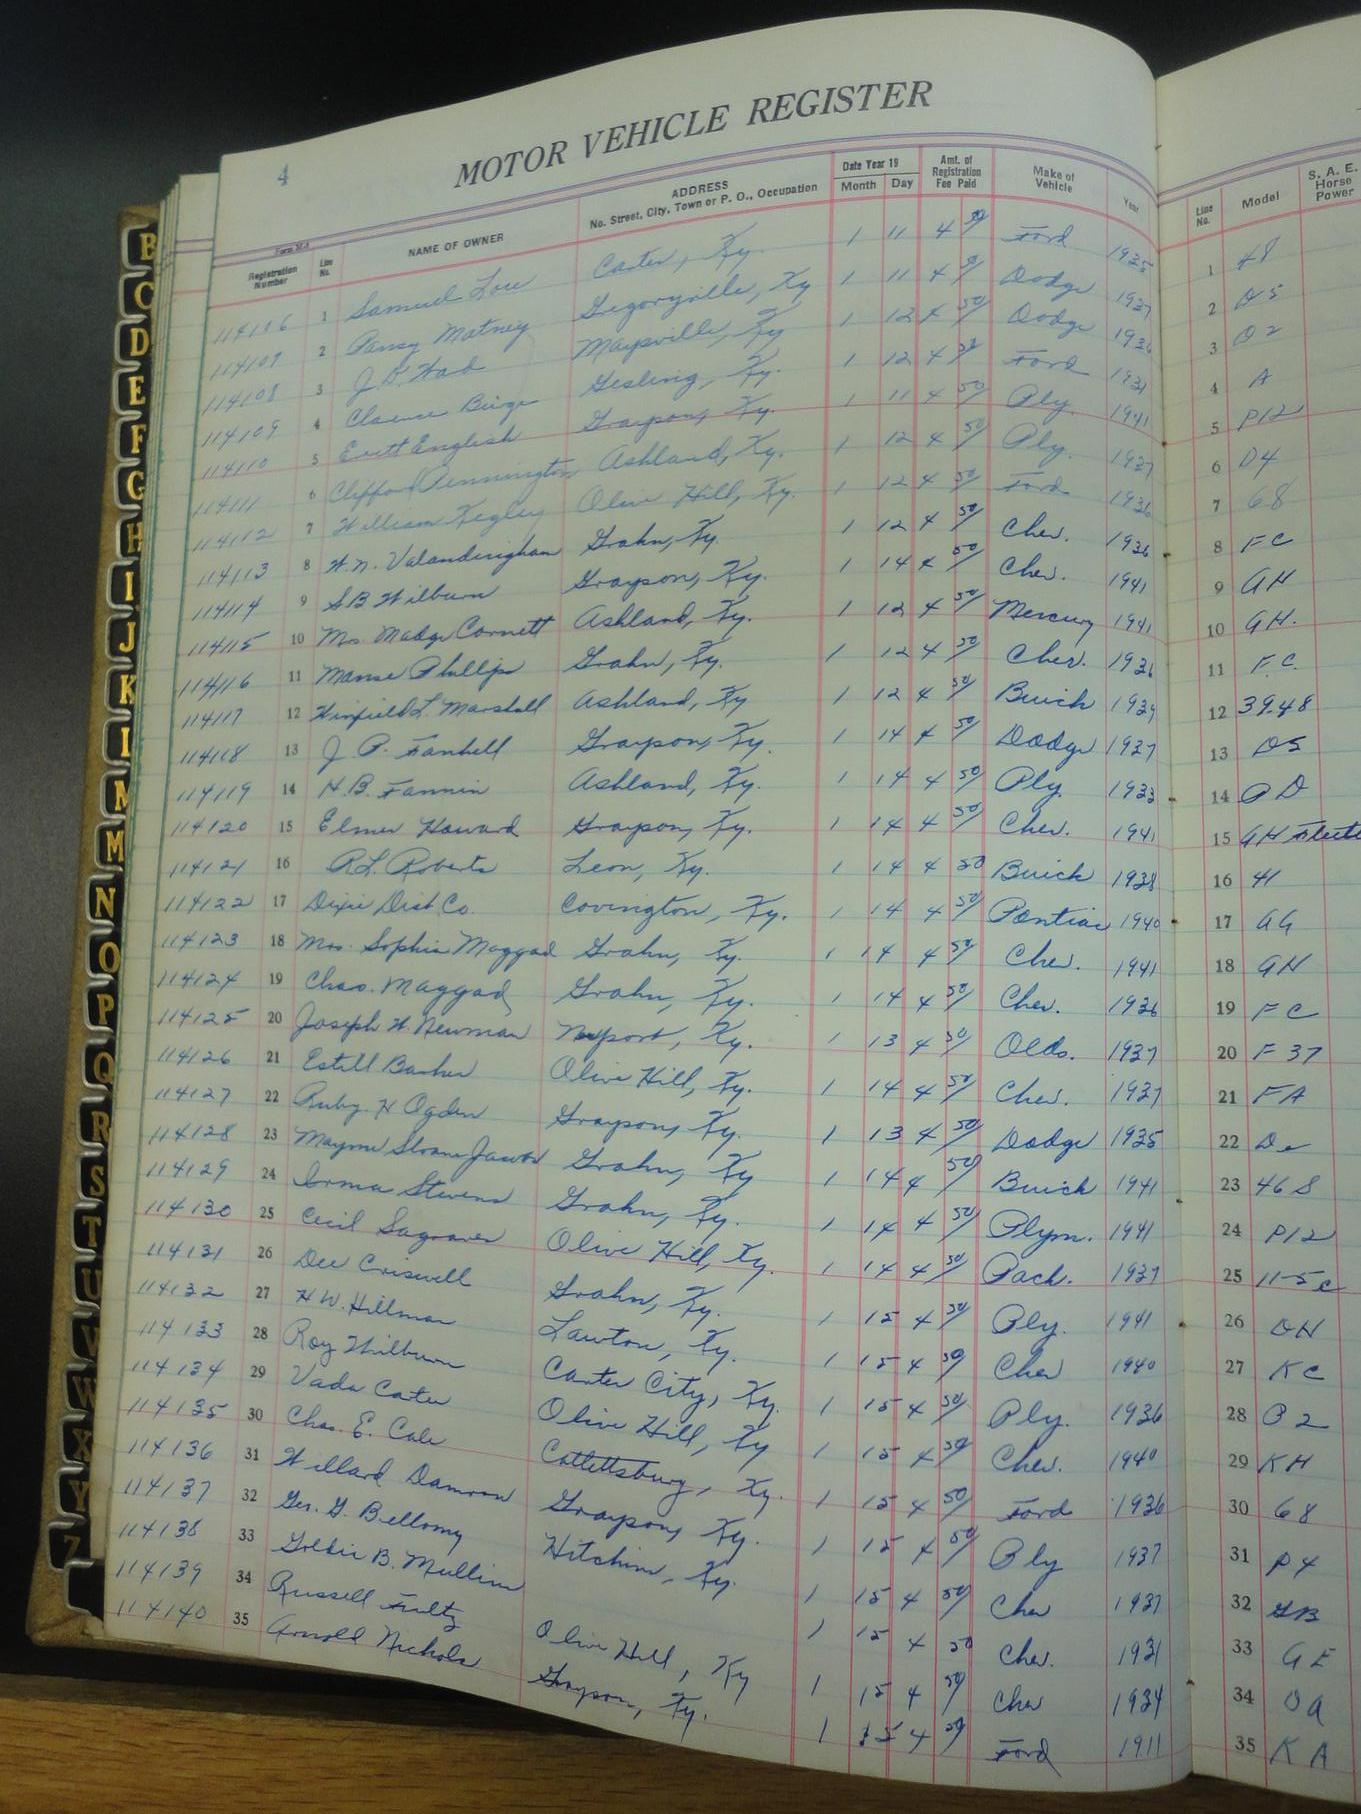 4 MOTOR VEHICLE REGISTER
Form M-A
Registration Number Line No. NAME OF OWNER ADDRESS No. Street, City, Town or P. O., Occupation Date Year 19 Month Day Amt. of Registration Fee Paid Make of Vehicle Year Line No. Model S. A. E. Horse Power
114106 1 Samuel Lowe Carter, Ky. 1 11 4 50 Ford 1935 1 48
114107 2 Pansy Matney Gregoryville, Ky 1 11 4 50 Dodge 1937 2 D5
114108 3 Maysville, Ky 1 12 4 50 Dodge 1936 3 D2
114109 4 Clarence Binge Gesling, Ky. 1 12 4 50 Ford 1931 4 A
114110 5 Evett English Grayson, Ky. 1 11 4 50 Ply. 1941 5 P12
114111 6 Clifford Pennington Ashland, Ky. 1 12 4 50 Ply. 1937 6 D4
114112 7 William Kegley Olive Hill, Ky. 1 12 4 50 Ford 1936 7 68
114113 8 W.N. Valandingham Grahn, Ky. 1 12 4 50 Chev. 1936 8 FC
114114 9 S B Wilburn Grayson, Ky. 1 14 4 50 Chev. 1941 9 AH
114115 10 Mrs. Madge Cornett Ashland, Ky. 1 12 4 50 Mercury 1941 10 AH.
114116 11 Manse Phillips Grahn, Ky. 1 12 4 50 Chev. 1936 11 F.C.
114117 12 Winfield L. Marshall Ashland, Ky 1 12 4 50 Buick 1939 12 39-48
114118 13 J. P. Grayson, Ky. 1 14 4 50 Dodge 1937 13 D5
114119 14 H.B. Fannin Ashland, Ky. 1 14 4 50 Ply. 1933 14 PD
114120 15 Elmer Howard Grayson, Ky. 1 14 4 50 Chev. 1941 15 AH
114121 16 R.L. Roberts Leon, Ky. 1 14 4 50 Buick 1938 16 41
114122 17 Dixie Dist Co. Covington, Ky. 1 14 4 50 Pontiac 1940 17
114123 18 Mrs. Sophia Maggad Grahn, Ky. 1 14 4 50 Chev. 1941 18 AH
114124 19 Chas. Maggad Grahn, Ky. 1 14 4 50 Chev. 1936 19 FC
114125 20 Joseph H. Newman Newport, Ky. 1 13 4 50 Olds. 1937 20 F 37
114126 21 Estill Barker Olive Hill, Ky. 1 14 4 50 Chev. 1937 21 FA
114127 22 Ruby H Ogden Grayson, Ky. 1 13 4 50 Dodge 1935 22
114128 23 Mayme Sloane Jacobs Grahn, Ky 1 14 4 50 Buick 1941 23 46 S
114129 24 Orma Stevens Grahn, Ky. 1 14 4 50 Plym. 1941 24 P12
114130 25 Cecil Sagraves Olive Hill, Ky. 1 14 4 50 Pack. 1937 25 115 C
114131 26 Dee Criswell Grahn, Ky. 1 15 4 50 Ply. 1941 26
114132 27 H W. Hillman Lawton, Ky. 1 15 4 50 Chev 1940 27 KC
114133 28 Roy Wilburn Carter City, Ky. 1 15 4 50 Ply. 1936 28 P2
114134 29 Vada Carter Olive Hill, Ky 1 15 4 50 Chev. 1940 29 KH
114135 30 Chas. E. Cale Catlettsburg, Ky. 1 15 4 50 Ford 1936 30 68
114136 31 Willard Damron Grayson, Ky. 1 15 4 50 Ply 1937 31 P4
114137 32 Geo. G. Bellomy Hitchins, Ky. 1 15 4 50 Chev 1937 32 GB
114138 33 Goldie B. Mullins 1 15 4 50 Chev. 1931 33 AE
114139 34 Russell Fultz Olive Hill, Ky 1 15 4 50 Chev 1934 34 DA
114140 35 Arnold Nichols Grayson, Ky. 1 15 4 50 Ford 1911 35 KA
B
C
D
E
F
G
H
I
J
K
L
M
M
N
O
P
Q
R
S
T
U
V
W
X
Y
Z